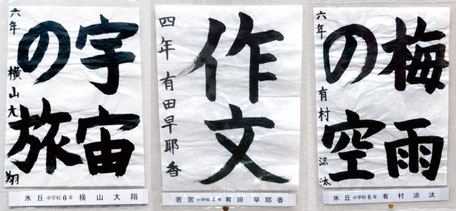 宇宙
の旅
六年 横山大翔
氷丘小学校6年 横山 大翔
作文
四年 有田早耶香
若宮小学校4年 有田 早耶香
梅雨
の空
六年 有村涼汰
氷丘小学校6年 有村 涼汰